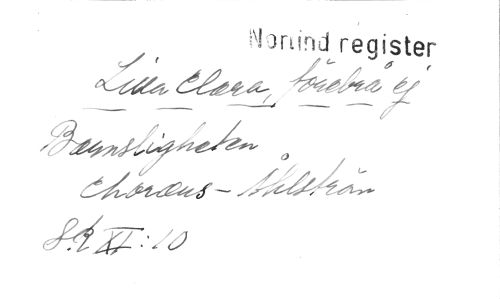 Nomind register
Lilla Clara, förebrå ej
Barnsligheten
Choræus – Åhlström
S.R XI:10